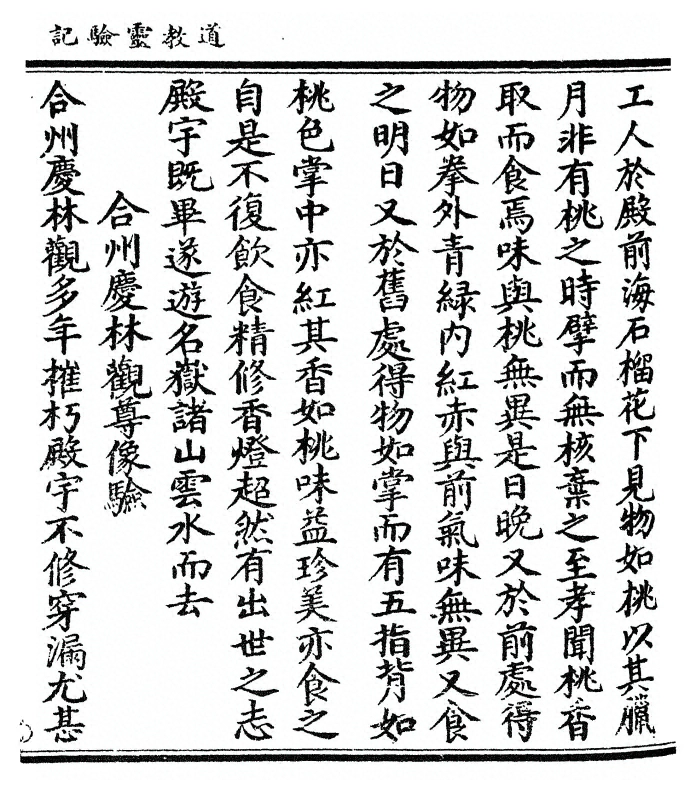 道教靈驗記
工人於殿前海石榴花下見物如桃以其臘
月非有桃之時擘而無核棄之至孝聞桃香
取而食焉味與桃無異是日晚又於前處得
物如拳外青緑内紅赤與前氣味無異又食
之明日又於舊處得物如掌而有五指背如
桃色掌中亦紅其香如桃味益珍美亦食之
自是不復飲食精修香燈超然有出世之志
殿宇既畢遂遊名嶽諸山雲水而去
合州慶林觀尊像驗
合州慶林觀多年摧朽殿宇不修穿漏尤甚